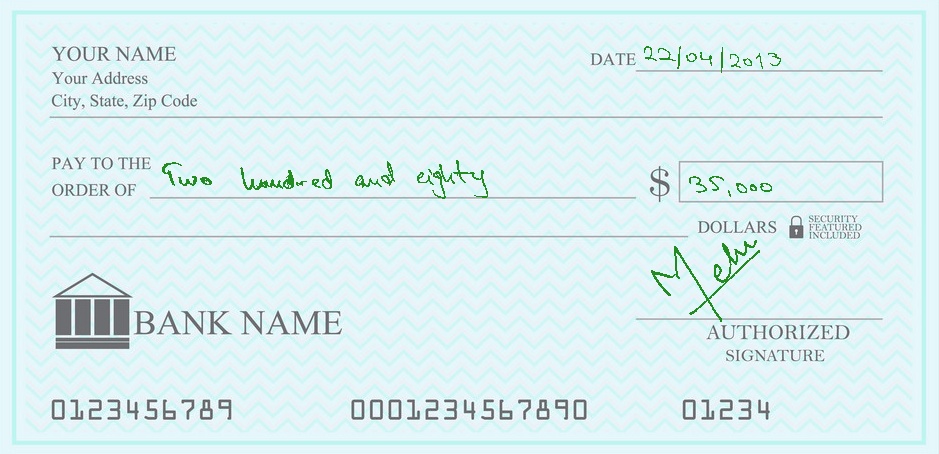 YOUR NAME
Your Address
City, State, Zip Code
DATE 22/04/2013
PAY TO THE
ORDER OF Two hundred and eighty $ 35,000
DOLLARS SECURITY
FEATURED
INCLUDED
BANK NAME
AUTHORIZED
SIGNATURE
0123456789 0001234567890 01234